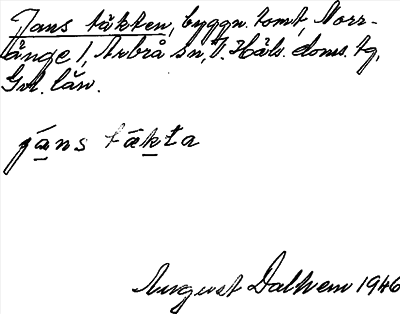 Jans täkten, byggn. tomt, Norr-
änge 1, Arbrå sn, V. Häls. doms. tg,
Gvl. län.
jáns tækta
August Dalhem 1946